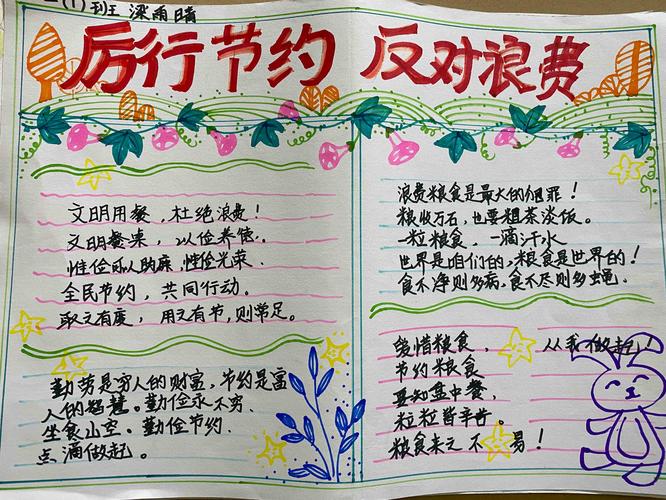 一(1)班 梁雨晴
厉行节约 反对浪费
文明用餐，杜绝浪费！
文明餐桌，以俭养德.
惟俭可以助廉,惟俭光荣.
全民节约，共同行动.
取之有度，用之有节,则常足。
勤劳是穷人的财富，节约是富
人的智慧。勤俭永不穷.
坐食山空。勤俭节约.
点滴做起。
浪费粮食是最大的细罪！
粮收万石，也要粗茶淡饭。
一粒粮食.一滴汗水
世界是咱们的,粮食是世界的！
食不净则多病.食不尽则多蝇.
爱惜粮食，从我做起！
节约粮食
要知盘中餐，
粒粒皆辛苦。
粮食来之不易！